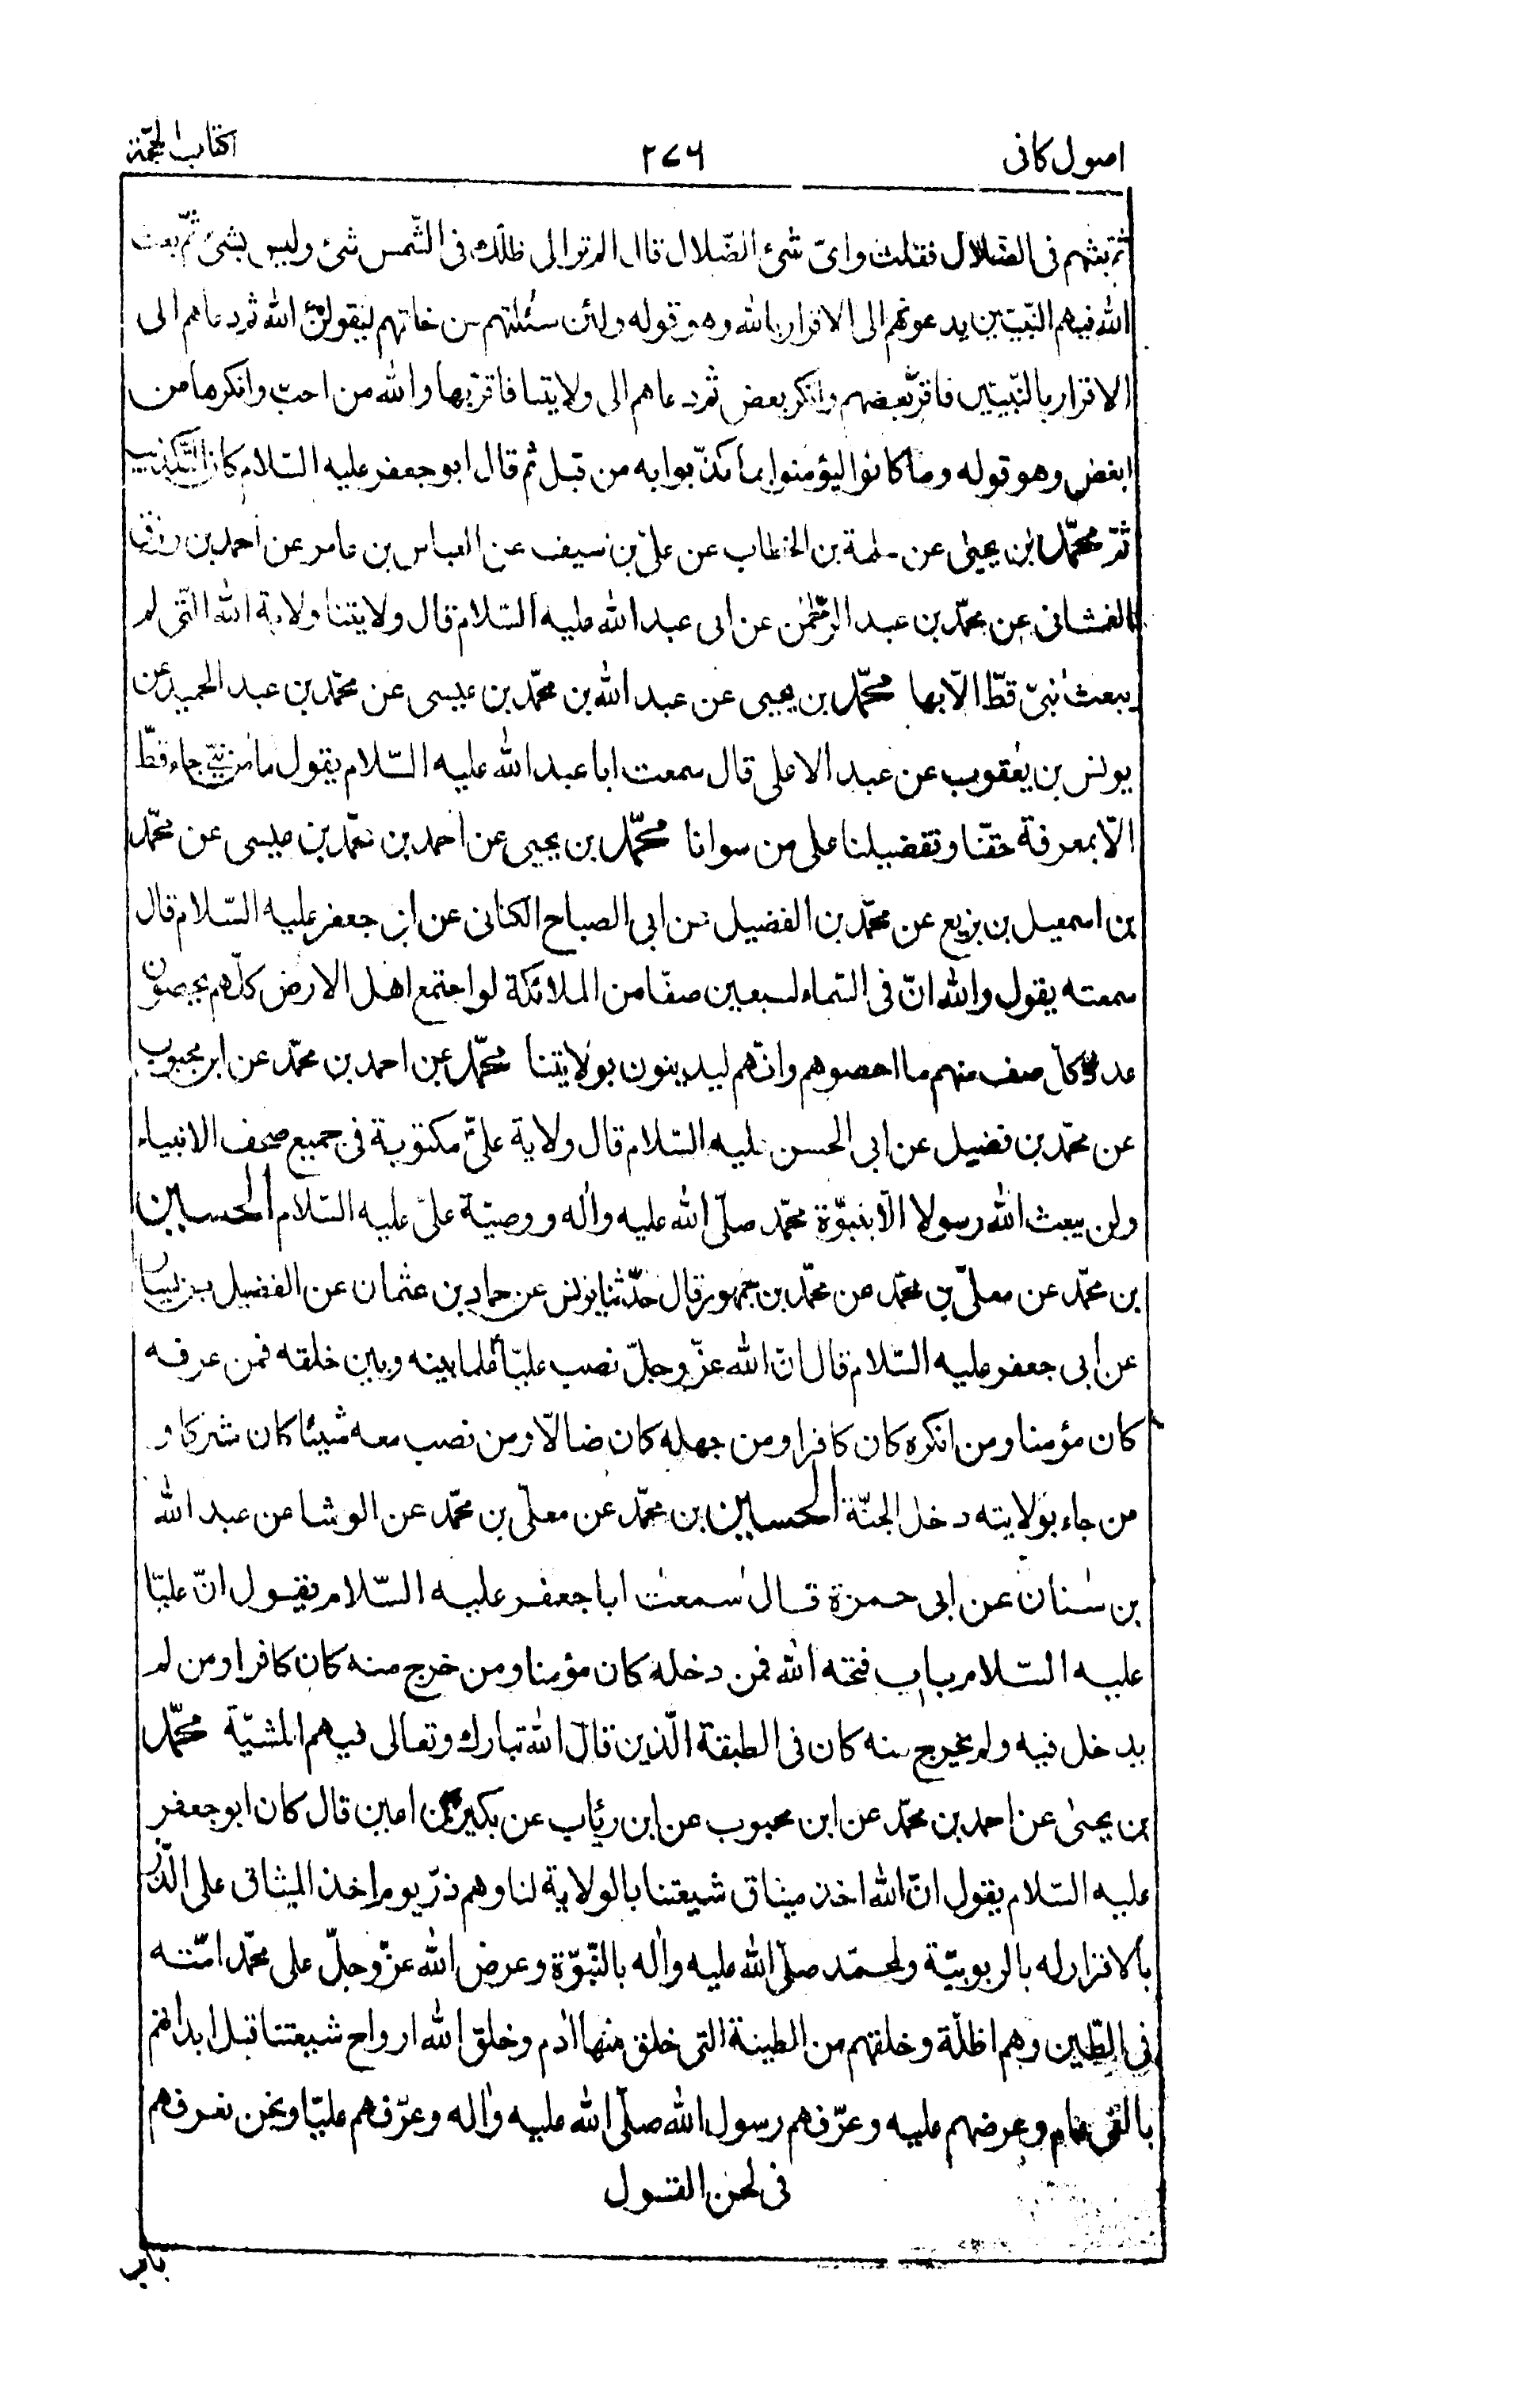 اصول كافى ٢٧٦ كتاب الحجّة
ثم بعثهم فى الضلال فقلت واىّ شئ الضّلال قال الم تر الى ظلّك فى الشّمس شئ وليس بشئ ثمّ بعث
الله فيهم النّبيّين يدعونهم الى الاقرار بالله وهو قوله ولئن سئلتهم من خلقهم ليقولنّ الله ثم دعاهم الى
الاقرار بالنّبيّين فاقرّ بعضهم وانكر بعض ثم دعاهم الى ولايتنا فاقرّ بها والله من احبّ وانكرها من
ابغض وهو قوله وما كانوا ليؤمنوا بما كذّبوا به من قبل ثم قال ابو جعفر عليه السّلام كان التّكذيب
ثمّ محمّد بن يحيى عن سلمة بن الخطاب عن علىّ بن سيف عن العباس بن عامر عن احمد بن رزق
الغمشانى عن محمّد بن عبد الرّحمٰن عن ابى عبد الله عليه السّلام قال ولايتنا ولاية الله الّتى لم
يبعث نبىّ قطّ الّا بها محمّد بن يحيى عن عبد الله بن محمّد بن عيسى عن محمّد بن عبد الحميد عن
يونس بن يعقوب عن عبد الاعلى قال سمعت ابا عبد الله عليه السّلام يقول ما من نبىّ جاء قطّ
الّا بمعرفة حقّنا وتفضيلنا على من سوانا محمّد بن يحيى عن احمد بن محمّد بن عيسى عن محمّد
بن اسمعيل بن بزيع عن محمّد بن الفضيل عن ابى الصباح الكنانى عن ابى جعفر عليه السّلام قال
سمعته يقول والله انّ فى السّماء لسبعين صفّا من الملائكة لو اجتمع اهل الارض كلّهم يحصون
عدد كلّ صف منهم ما احصوهم وانّهم ليدينون بولايتنا محمّد عن احمد بن محمّد عن ابن محبوب
عن محمّد بن فضيل عن ابى الحسن عليه السّلام قال ولاية علىّ مكتوبة فى جميع صحف الانبياء
ولن يبعث الله رسولا الّا بنبوّة محمّد صلّى الله عليه واٰله و وصيّة علىّ عليه السّلام الحسين
بن محمّد عن معلّى بن محمّد عن محمّد بن جمهور قال حدّثنا يونس عن حماد بن عثمان عن الفضيل بن يسار
عن ابى جعفر عليه السّلام قال انّ الله عزّ وجلّ نصب عليّا علما بينه وبين خلقه فمن عرفه
كان مؤمنا ومن انكره كان كافرا ومن جهله كان ضالّا ومن نصب معه شيئا كان مشركا و
من جاء بولايته دخل الجنّة الحسين بن محمّد عن معلّى بن محمّد عن الوشا عن عبد الله
بن سنان عن ابى حمزة قال سمعت ابا جعفر عليه السّلام يقول انّ عليّا
عليه السّلام باب فتحه الله فمن دخله كان مؤمنا ومن خرج منه كان كافرا ومن لم
يدخل فيه ولم يخرج منه كان فى الطبقة الّذين قال الله تبارك وتعالى فيهم المشيّة محمّد
بن يحيىٰ عن احمد بن محمّد عن ابن محبوب عن ابن رئاب عن بكير بن اعين قال كان ابو جعفر
عليه السّلام يقول انّ الله اخذ ميثاق شيعتنا بالولاية لنا وهم ذرّ يوم اخذ الميثاق على الّذر
بالاقرار له بالربوبيّة ولمحمّد صلّى الله عليه واٰله بالنّبوّة وعرض الله عزّ وجلّ على محمّد امّته
فى الطّين وهم اظلّة وخلقهم من الطينة التى خلق منها اٰدم وخلق الله ارواح شيعتنا قبل ابدانهم
بالفى عام وعرضهم عليه وعرّفهم رسول الله صلّى الله عليه واٰله وعرّفهم عليّا ونحن نعرفهم
فى لحن القول
باب